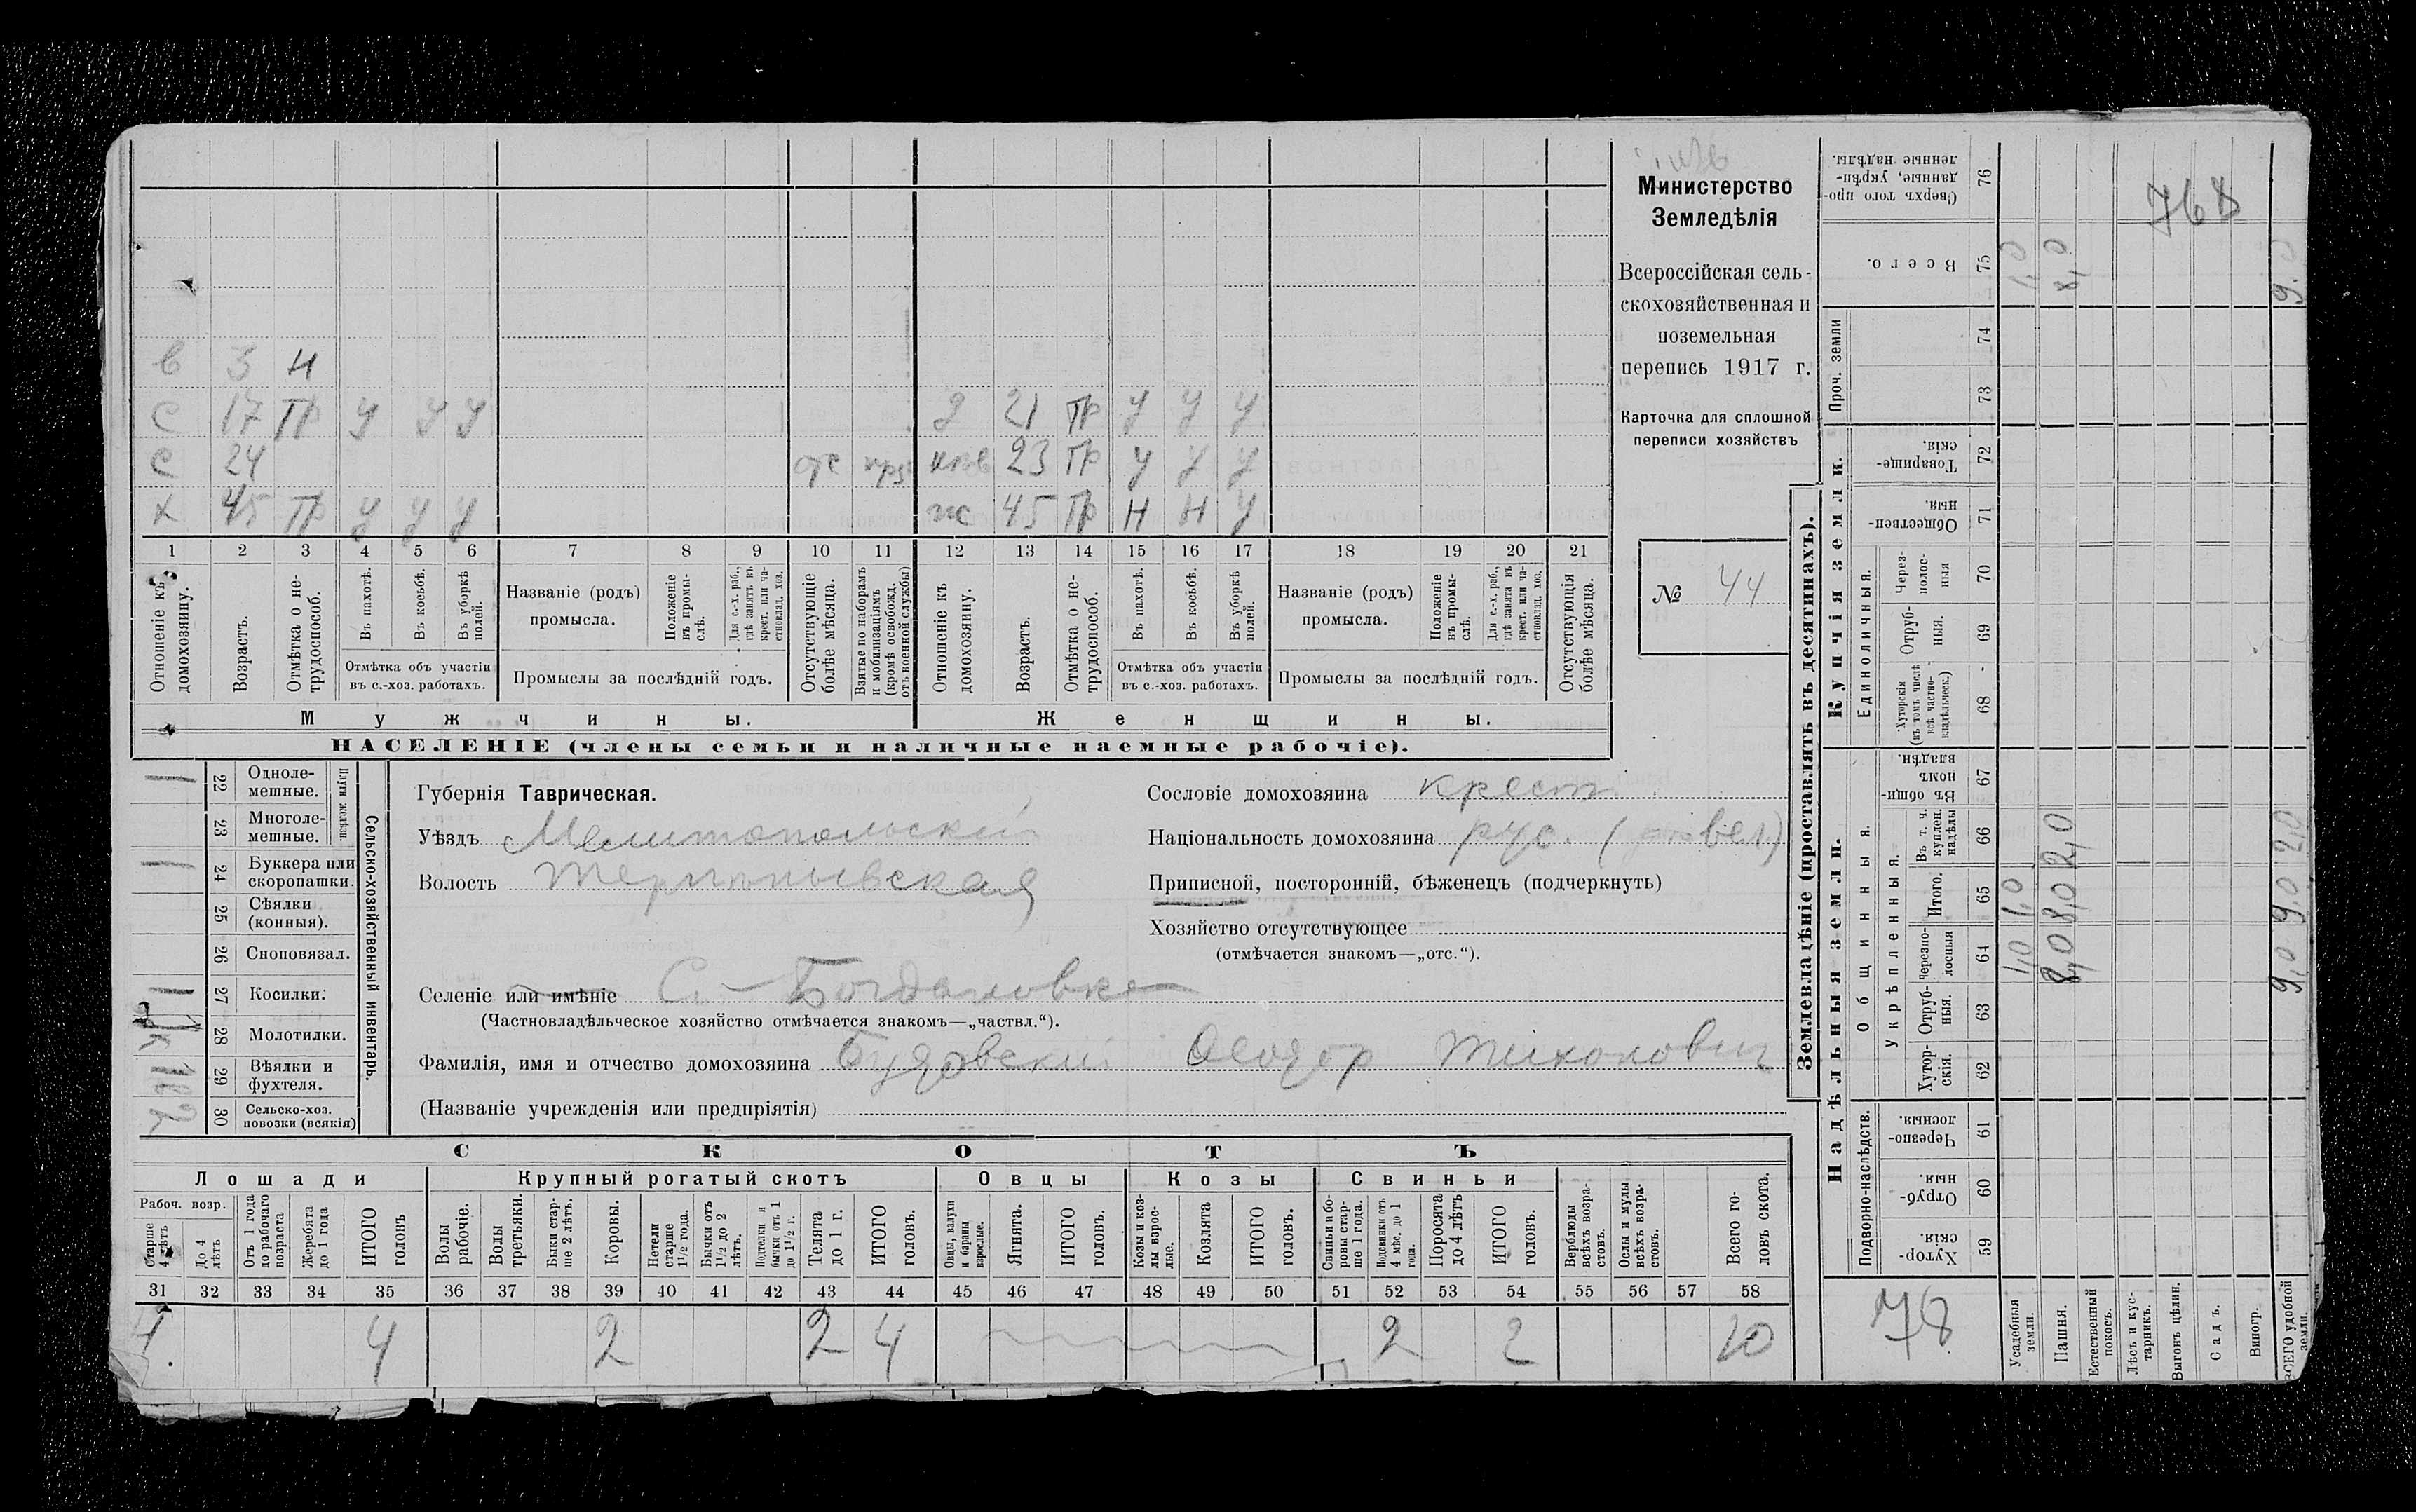 Министерство
Земледѣлія
Всероссійская сель-
скохозяйственная и
поземельная
перепись 1917 г.
Карточка для сплошной
переписи хозяйствъ
№ 44
в 3 н
с 17 тр у у у
д 21 тр у у у
с 24 отс
23 тр у у у
х 45 тр у у у
ж 45 тр н н у
1 2 3 4 5 6 7 8 9 10 11 12 13 14 15 16 17 18 19 20 21
Отношеніе къ домохозяину.
Возрастъ.
Отмѣтка о не-трудоспособ.
Въ пахотѣ.
Въ косьбѣ.
Въ уборкѣ полей.
Отмѣтка объ участіи
въ с.-хоз. работахъ.
Названіе (родъ)
промысла.
Положеніе въ промы-слѣ.
Для с.-х. раб., гдѣ занятъ въ крест. или ча-стновлад. хоз.
Промыслы за послѣдній годъ.
Отсутствующіе болѣе мѣсяца.
Взятые по наборамъ и мобилизаціямъ (кромѣ освобожд. отъ военной службы)
Отношеніе къ домохозяину.
Возрастъ.
Отмѣтка о не-трудоспособ.
Въ пахотѣ.
Въ косьбѣ.
Въ уборкѣ полей.
Отмѣтка объ участіи
въ с.-хоз. работахъ.
Названіе (родъ)
промысла.
Положеніе въ промы-слѣ.
Для с.-х. раб., гдѣ занята въ крест. или ча-стновлад. хоз.
Промыслы за послѣдній годъ.
Отсутствующія болѣе мѣсяца.
Мужчины.
Женщины.
НАСЕЛЕНІЕ (члены семьи и наличные наемные рабочіе).
Сельско-хозяйственный инвентарь.
Плуги желѣзн.
1 22 Одноле-мешные.
23 Многоле-мешные.
1 24 Буккера или скоропашки.
25 Сѣялки (конныя).
26 Сноповязал.
1 27 Косилки.
28 Молотилки.
29 Вѣялки и фухтеля.
2 30 Сельско-хоз. повозки (всякія)
Губернія Таврическая.
Уѣздъ Мелитопольскій
Волость Терпѣньевская
Селеніе или имѣніе С. Богдановка
(Частновладѣльческое хозяйство отмѣчается знакомъ—„частвл.“).
Фамилія, имя и отчество домохозяина Будовскій Ѳеодор Тихонович
(Названіе учрежденія или предпріятія)
Сословіе домохозяина крест.
Національность домохозяина рус. ( вел.)
Приписной, посторонній, бѣженецъ (подчеркнуть)
Хозяйство отсутствующее
(отмѣчается знакомъ—„отс.“).
СКОТЪ
Лошади
Крупный рогатый скотъ
Овцы
Козы
Свиньи
Рабоч. возр.
Старше 4 лѣтъ
До 4 лѣтъ
Отъ 1 года до рабочаго возраста
Жеребята до 1 года
ИТОГО головъ
Волы рабочіе.
Волы третьяки.
Быки стар-ше 2 лѣтъ.
Коровы.
Нетели старше 1½ года.
Бычки отъ 1½ до 2 лѣтъ.
Подтелки и бычки отъ 1 до 1½ г.
Телята до 1 г.
ИТОГО головъ.
Овцы, валухи и бараны взрослые.
Ягнята.
ИТОГО головъ.
Козы и коз-лы взрос-лые.
Козлята
ИТОГО головъ.
Свиньи и бо-ровы стар-ше 1 года.
Подсвинки отъ 4 мѣс. до 1 года.
Поросята до 4 лѣтъ
ИТОГО головъ.
Верблюды всѣхъ возра-стовъ.
Ослы и мулы всѣхъ возра-стовъ.
Всего го-ловъ скота.
31 32 33 34 35 36 37 38 39 40 41 42 43 44 45 46 47 48 49 50 51 52 53 54 55 56 57 58
4 4 2 2 4 2 2 10
Землевладѣніе (проставлять въ десятинахъ).
Надѣльныя земли.
Купчія земли.
Проч. земли
Подворно-наслѣдств.
Общинныя.
Укрѣпленныя.
Единоличныя.
Хутор-скія. 59
Отруб-ныя. 60
Черезпо-лосныя. 61
Хутор-скія. 62
Отруб-ныя. 63
Черезпо-лосныя 64
Итого. 65
Въ т. ч. куплен. надѣлы 66
Въ общи-номъ владѣн. 67
Хуторскія (въ томъ числѣ всѣ частно-владѣльческ.) 68
Отруб-ныя. 69
Через-полос-ныя 70
Обществен-ныя. 71
Товарище-скія. 72
73
74
Всего. 75
Сверхъ того про-данные, укрѣп-ленные надѣлы. 76
Усадебныя земли. 1,0 1,0 1,0
Пашня. 8,0 8,0 2,0 8,0
Естественный покосъ.
Лѣсъ и кус-тарникъ.
Выгонъ цѣлин.
Садъ.
Виногр.
ВСЕГО удобной земли. 9,0 9,0 2,0 9,0
78